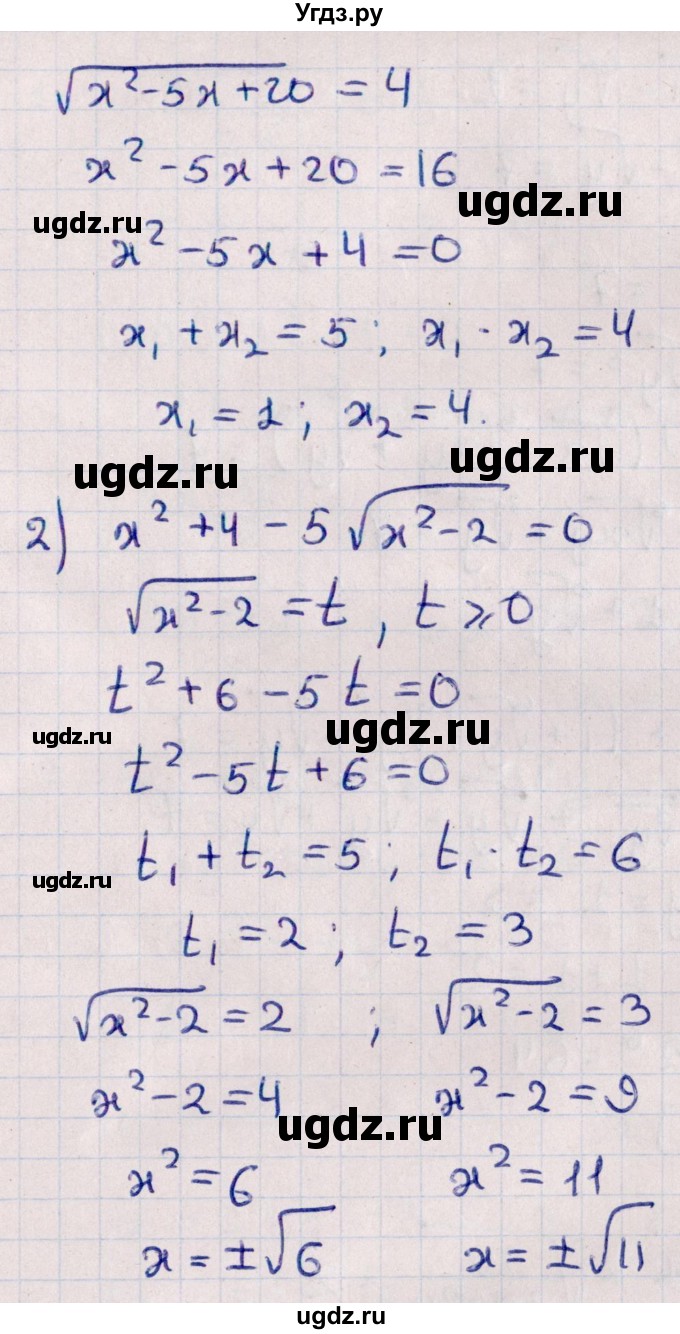 Угдз.ру
√(x²-5x+20) = 4
x²-5x+20 = 16
ugdz.ru
ugdz.ru
x²-5x+4 = 0
x₁+x₂ = 5; x₁·x₂ = 4
x₁ = 1; x₂ = 4.
ugdz.ru
ugdz.ru
2) x²+4-5√(x²-2) = 0
√(x²-2) = t, t ⩾ 0
t²+6-5t = 0
ugdz.ru
ugdz.ru
t²-5t+6 = 0
t₁+t₂ = 5; t₁·t₂ = 6
ugdz.ru
t₁ = 2; t₂ = 3
√(x²-2) = 2; √(x²-2) = 3
x²-2 = 4 x²-2 = 9
ugdz.ru
x² = 6 x² = 11
x = ±√6 x = ±√11
ugdz.ru